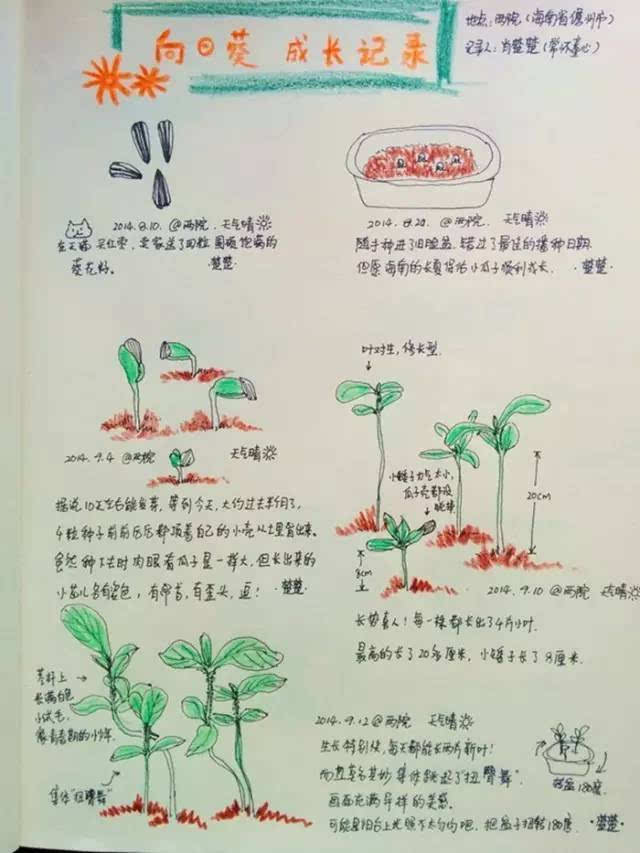 向日葵 成长记录
地点:两院(海南省儋州市)
记录人:肖楚楚(常怀童心)
2014.8.10. @两院. 天气晴
在天猫买红枣,卖家送了四粒圆硕饱满的
葵花籽。 ·楚楚·
2014.8.20. @两院. 天气晴
随手种进了旧脸盆.错过了最佳的播种日期.
但愿海南的长夏保佑小瓜子顺利成长. ·楚楚·
2014.9.4 @两院 天气晴
据说10天左右能发芽,等到今天,大约过去半月了,
4粒种子前前后后都顶着自己的小壳从土里冒出来。
虽然种下去时肉眼看瓜子是一样大,但长出来的
小苗儿各有姿色,有昂首,有歪头,逗! ·楚楚·
叶对生,修长型.
小矮子力气太小,
瓜子壳都没
脱掉
20cm
8cm
2014.9.10 @两院 天气晴
长势喜人!每一棵都长出了4片小叶.
最高的长了20多厘米,小矮子长了8厘米.
茎秆上
长满白色
小绒毛
像青春期的小少年.
集体"扭臀舞"
2014.9.12 @两院 天气晴
生长特别快,每天都能长两片新叶!
而且莫名其妙集体跳起了"扭臀舞"
画面充满异样的美感.
可能是阳台上光照不太均匀吧,把盆子扭转180度. ·楚楚·
转盆180度.